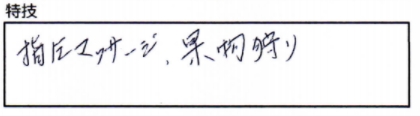 特技
指圧マッサージ、果物狩り